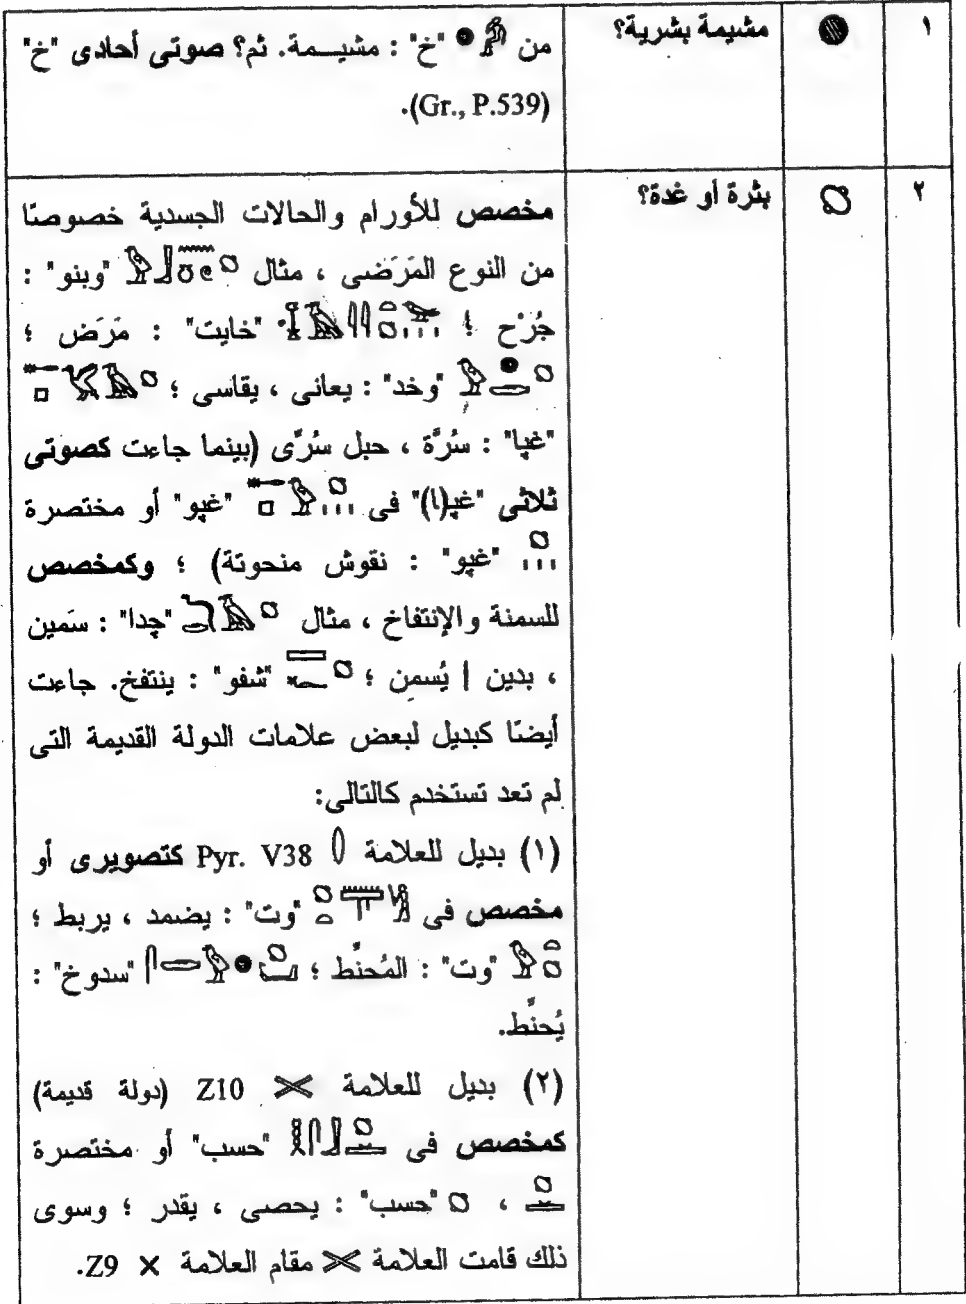 ١ مشيمة بشرية؟ من "خ" : مشيـــمة. ثم؟ صوتى أحادى "خ"
(Gr., P.539).
٢ بثرة أو غدة؟ مخصص للأورام والحالات الجسدية خصوصًا
من النوع المَرَضى ، مثال "وبنو" :
جُرْح ؛ "خايت" : مَرَض ؛
"وخد" : يعانى ، يقاسى ؛
"غپا" : سُرَّة ، حبل سُرِّى (بينما جاءت كصوتى
ثلاثى "غپ(ا)" فى "غپو" أو مختصرة
"غپو" : نقوش منحوتة) ؛ وكمخصص
للسمنة والإنتفاخ ، مثال "چدا" : سَمين
، بدين | يُسمِن ؛ "شفو" : ينتفخ. جاءت
أيضًا كبديل لبعض علامات الدولة القديمة التى
لم تعد تستخدم كالتالى:
(١) بديل للعلامة Pyr. V38 كتصويرى أو
مخصص فى "وت" : يضمد ، يربط ؛
"وت" : المُحنِّط ؛ "سدوخ" :
يُحنِّط.
(٢) بديل للعلامة Z10 (دولة قديمة)
كمخصص فى "حسب" أو مختصرة
، "حسب" : يحصى ، يقدر ؛ وسوى
ذلك قامت العلامة مقام العلامة Z9.